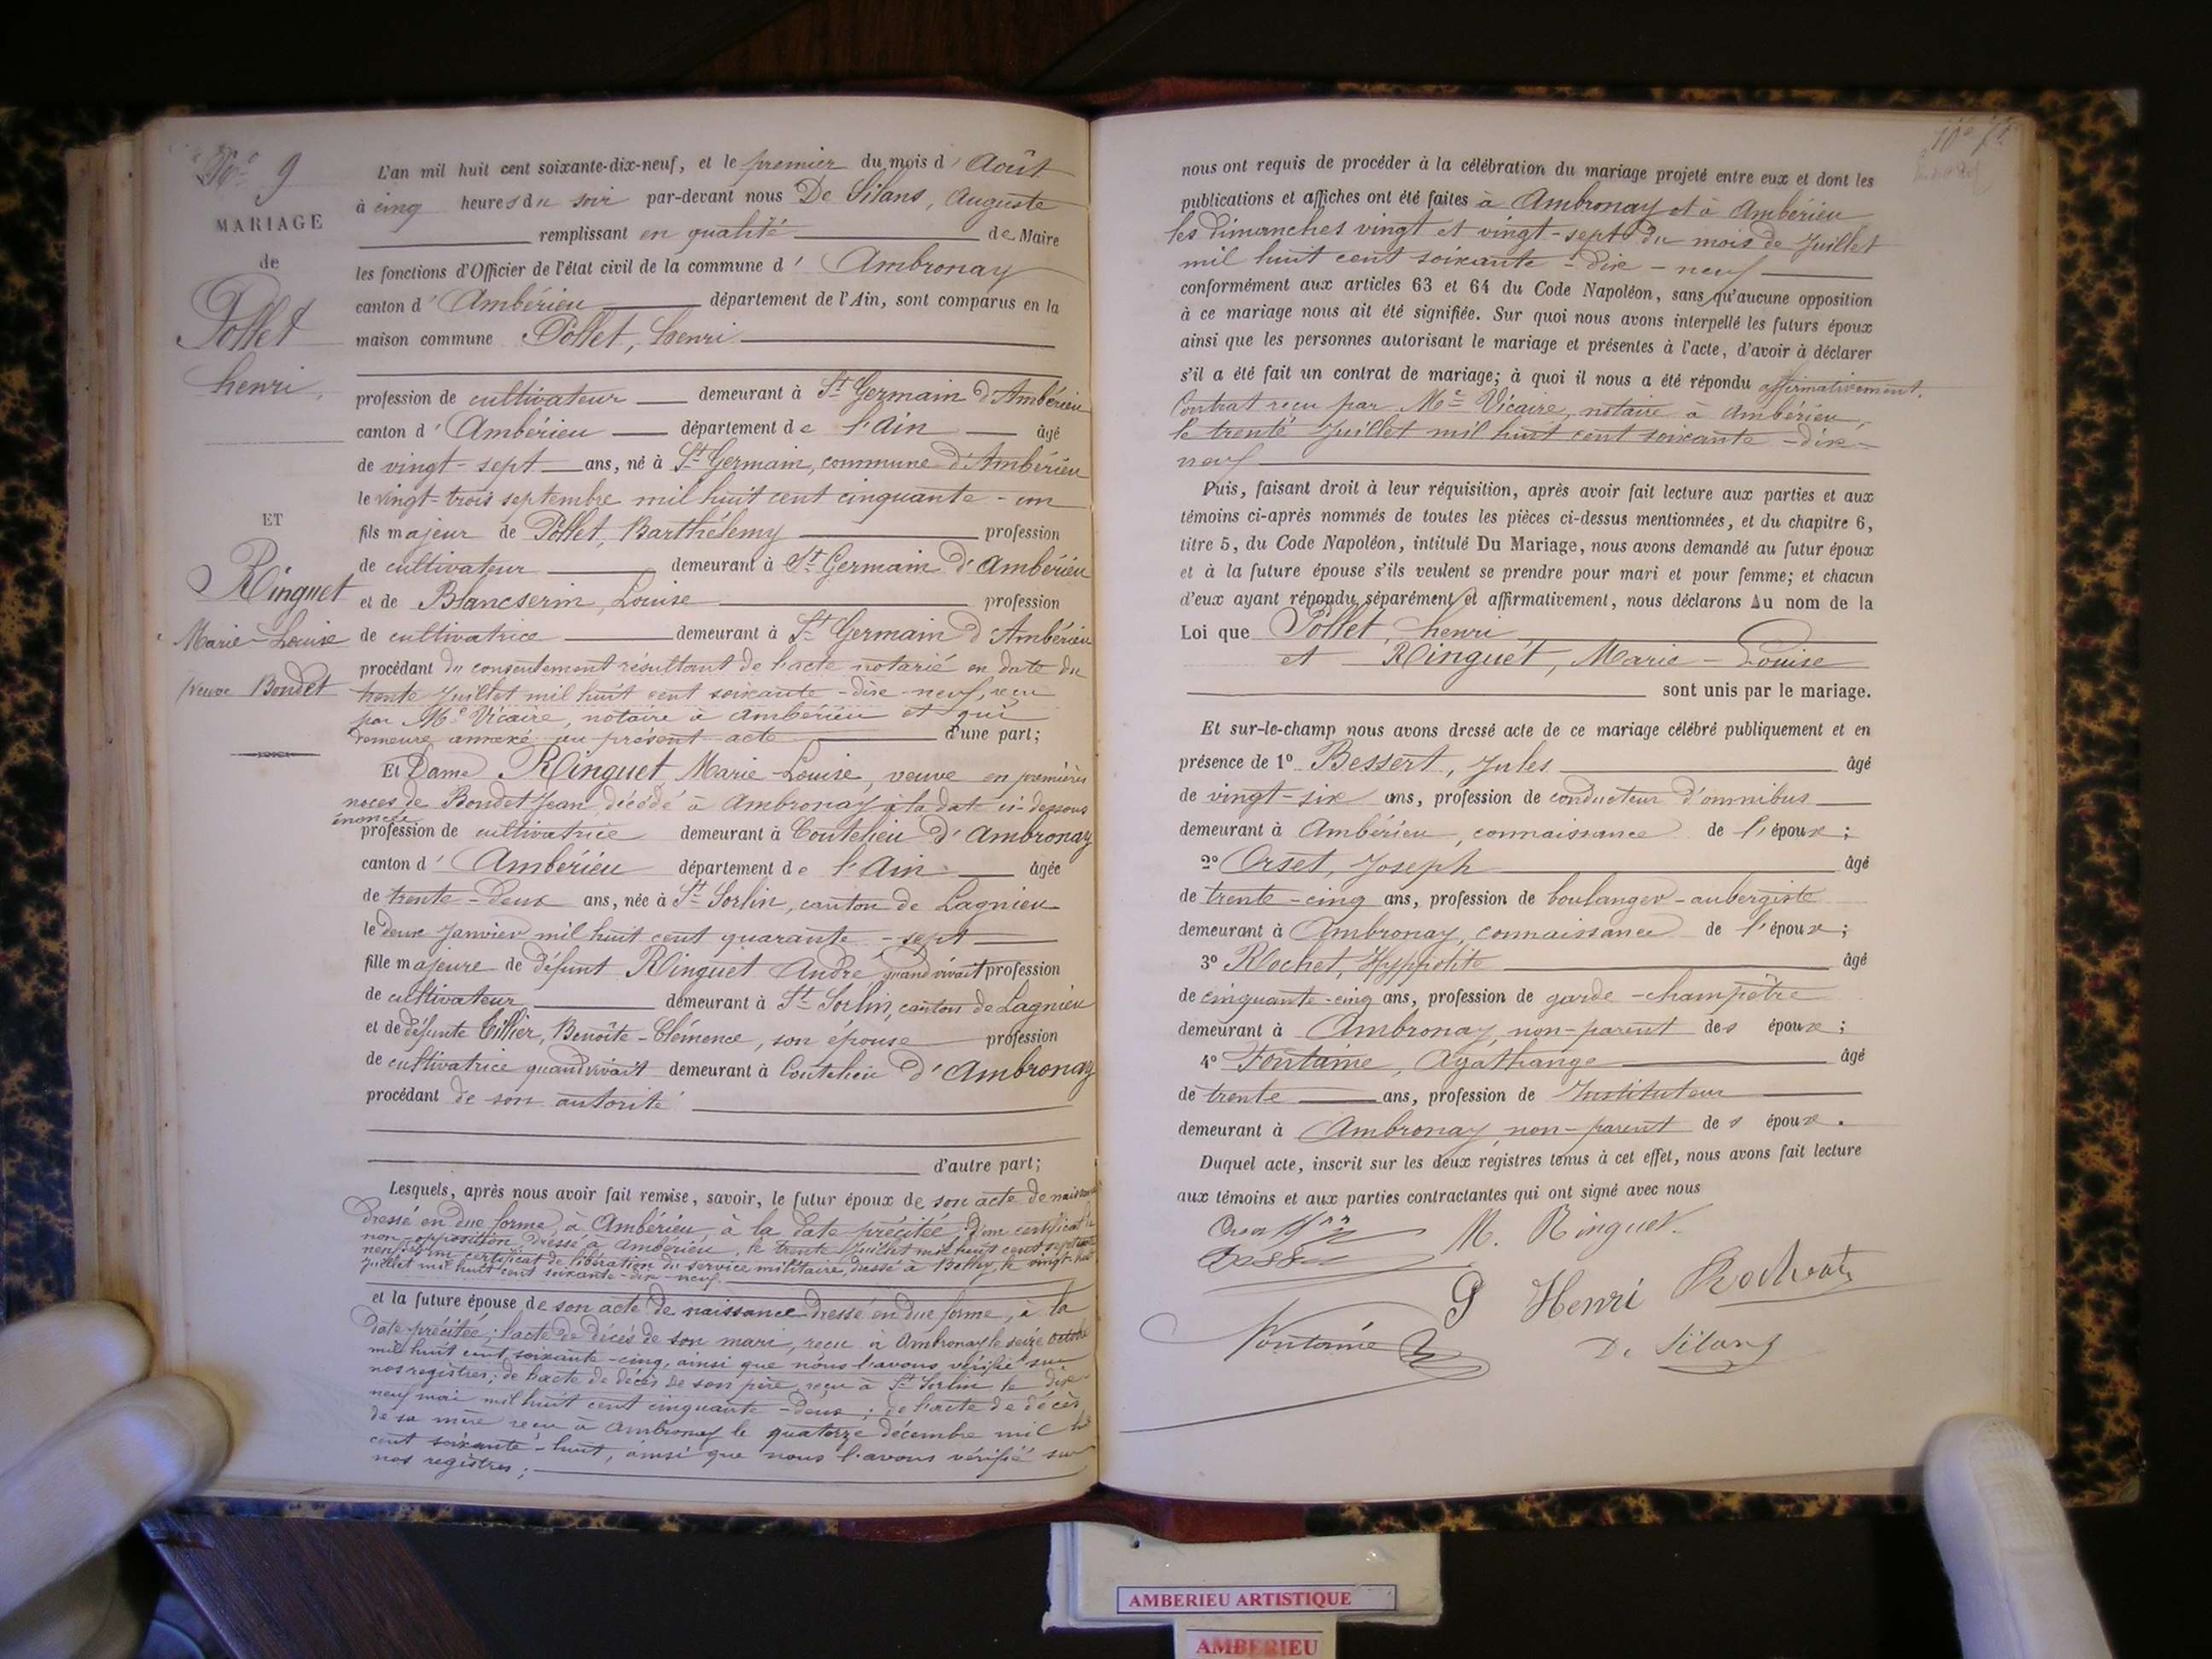 N° 9
MARIAGE
de
Pollet
henri,
ET
Ringuet
Marie-Louise
veuve Bondet
L'an mil huit cent soixante-dix-neuf, et le premier du mois d'Août
à cinq heures du soir par-devant nous De Silans, Auguste
remplissant en qualité de Maire
les fonctions d'Officier de l'état civil de la commune d'Ambronay
canton d'Ambérieu département de l'Ain, sont comparus en la
maison commune Pollet, henri
profession de cultivateur demeurant à St Germain d'Ambérieu
canton d'Ambérieu département de l'Ain âgé
de vingt-sept ans, né à St Germain, commune d'Ambérieu
le vingt-trois septembre mil huit cent cinquante-un
fils majeur de Pollet, Barthélemy profession
de cultivateur demeurant à St Germain d'Ambérieu
et de Blancserin, Louise profession
de cultivatrice demeurant à St Germain d'Ambérieu
procédant du consentement résultant de l'acte notarié en date du
trente Juillet mil huit cent soixante-dix-neuf, reçu
par Me Vicaire, notaire à Ambérieu et qui
demeure annexé au présent acte d'une part;
Et Dame Ringuet Marie-Louise, veuve en premières
noces de Bondet Jean, décédé à Ambronay à la date ci-dessous
énoncée
profession de cultivatrice demeurant à Coutelieu d'Ambronay
canton d'Ambérieu département de l'Ain âgée
de trente-deux ans, née à St Sorlin, canton de Lagnieu
le deux Janvier mil huit cent quarante-sept
fille majeure de défunt Ringuet André quand vivait profession
de cultivateur demeurant à St Sorlin, canton de Lagnieu
et de défunte Tillier, Benoîte-Clémence, son épouse profession
de cultivatrice quand vivait demeurant à Coutelieu d'Ambronay
procédant de son autorité
d'autre part;
Lesquels, après nous avoir fait remise, savoir, le futur époux de son acte de naissance
dressé en due forme, à Ambérieu, à la date précitée; d'un certificat de
non-opposition, dressé à Ambérieu, le trente Juillet mil huit cent
d'un certificat de libération du service militaire, dressé à Belley, le vingt-huit
juillet mil huit cent soixante-dix-neuf.
et la future épouse de son acte de naissance dressé en due forme, à la
date précitée; l'acte de décès de son mari, reçu à Ambronay le seize octobre
mil huit cent soixante-cinq, ainsi que nous l'avons vérifié sur
nos registres; de l'acte de décès de son père, reçu à St Sorlin le dix-
neuf mai mil huit cent cinquante-deux; de l'acte de décès
de sa mère reçu à Ambronay le quatorze décembre mil huit
cent soixante-huit, ainsi que nous l'avons vérifié sur
nos registres;
nous ont requis de procéder à la célébration du mariage projeté entre eux et dont les
publications et affiches ont été faites à Ambronay et à Ambérieu
les Dimanches vingt et vingt-sept du mois de Juillet
mil huit cent soixante-dix-neuf
conformément aux articles 63 et 64 du Code Napoléon, sans qu'aucune opposition
à ce mariage nous ait été signifiée. Sur quoi nous avons interpellé les futurs époux
ainsi que les personnes autorisant le mariage et présentes à l'acte, d'avoir à déclarer
s'il a été fait un contrat de mariage; à quoi il nous a été répondu affirmativement.
Contrat reçu par Me Vicaire, notaire à Ambérieu,
le trente Juillet mil huit cent soixante-dix-
neuf
Puis, faisant droit à leur réquisition, après avoir fait lecture aux parties et aux
témoins ci-après nommés de toutes les pièces ci-dessus mentionnées, et du chapitre 6,
titre 5, du Code Napoléon, intitulé Du Mariage, nous avons demandé au futur époux
et à la future épouse s'ils veulent se prendre pour mari et pour femme; et chacun
d'eux ayant répondu séparément et affirmativement, nous déclarons Au nom de la
Loi que Pollet, henri
et Ringuet, Marie-Louise
sont unis par le mariage.
Et sur-le-champ nous avons dressé acte de ce mariage célébré publiquement et en
présence de 1° Bessert, Jules âgé
de vingt-six ans, profession de conducteur d'omnibus
demeurant à Ambérieu, connaissance de l'époux;
2° Orset, Joseph âgé
de trente-cinq ans, profession de boulanger-aubergiste
demeurant à Ambronay, connaissance de l'époux;
3° Rochet, Hyppolite âgé
de cinquante-cinq ans, profession de garde-champêtre
demeurant à Ambronay, non-parent des époux;
4° Fontaine, Agathange âgé
de trente ans, profession de Instituteur
demeurant à Ambronay, non-parent des époux.
Duquel acte, inscrit sur les deux registres tenus à cet effet, nous avons fait lecture
aux témoins et aux parties contractantes qui ont signé avec nous
M. Ringuet
P Henri
Fontaine
D. Silans
AMBERIEU ARTISTIQUE
AMBERIEU